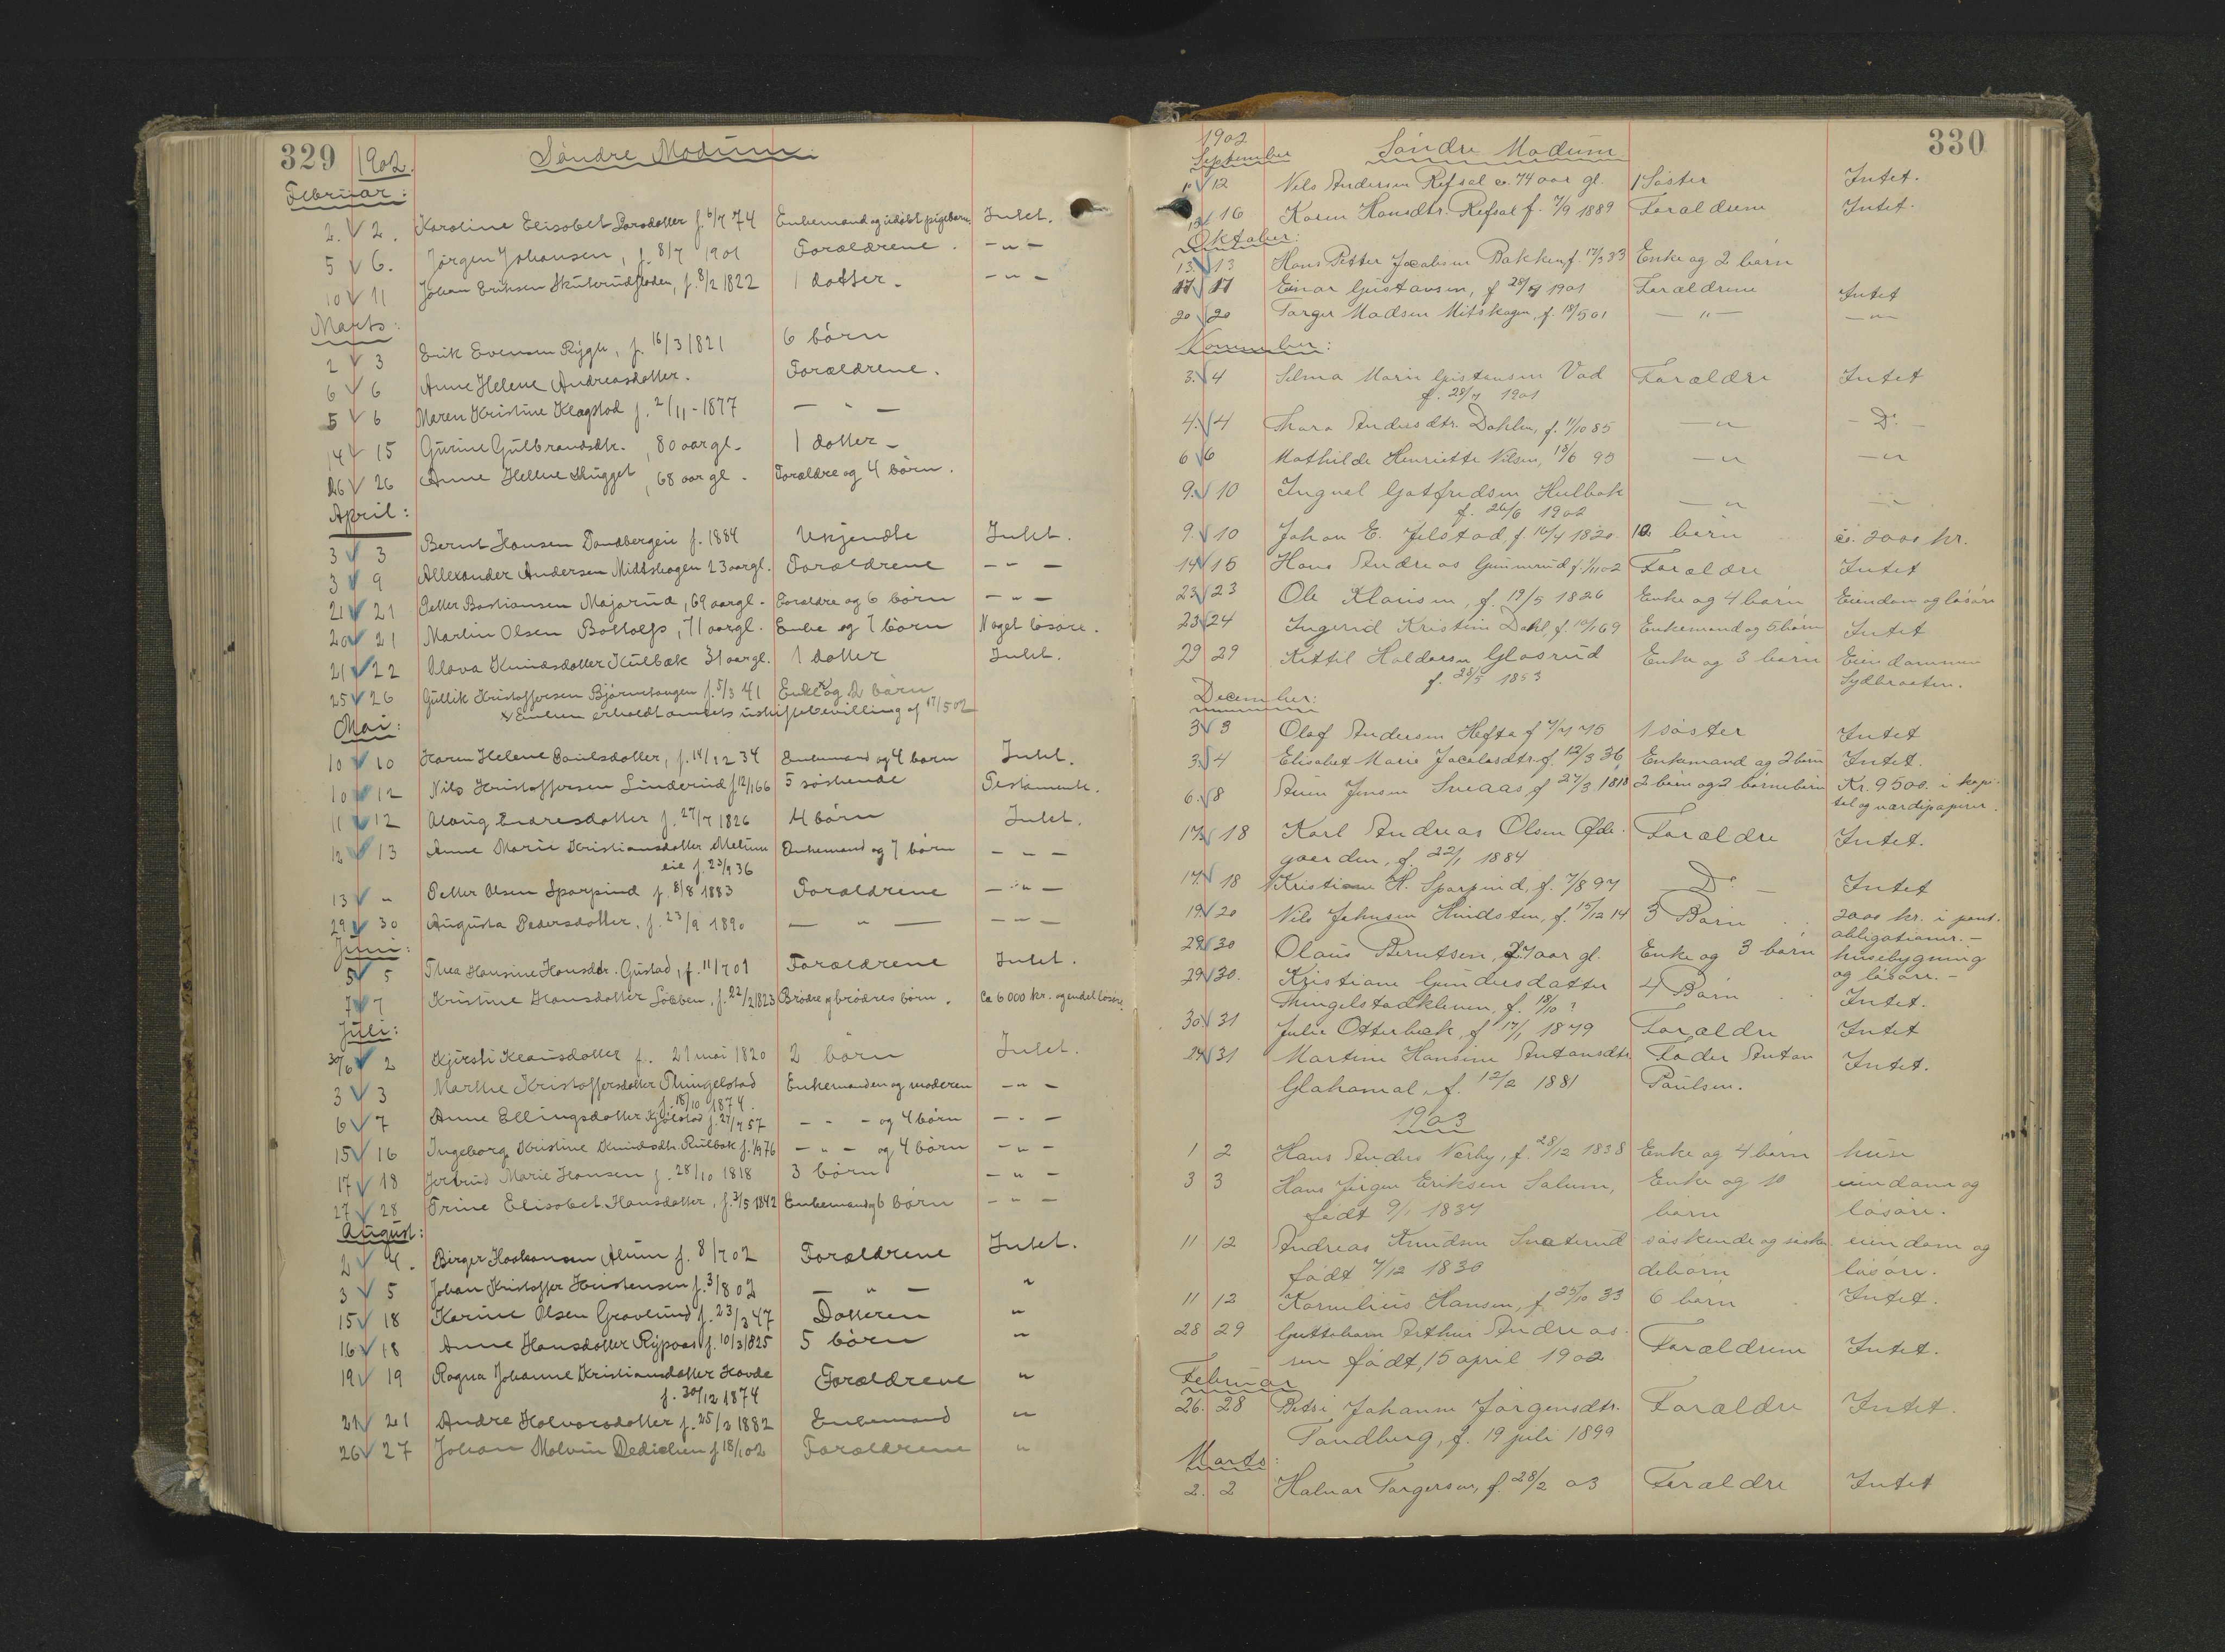 329 1902. Søndre Modum.
Februar:
2. 2. Karoline Elisabet Larsdatter f. 6/7 74 Enkemand og udøbt pigebarn. Intet.
5 6. Jørgen Johansen, f. 8/7 1901 Forældrene. — " —
10 11 Johan Eriksen Skuterudfladen, f. 8/2 1822 1 datter. — " —
Marts:
2 3 Erik Evensen Rygh, f. 16/3 1821 6 børn
6 6 Anne Helene Andreasdatter. Forældrene.
5 6 Maren Kristine Klagstad f. 2/11 - 1877 — " —
14 15 Gurine Gulbrandsdtr., 80 aar gl. 1 datter —
26 26 Anne Hellene Skugget, 68 aar gl. Forældre og 4 børn.
April:
3 3 Bernt Hansen Sandbergeie f. 1884 Ukjendte Intet.
3 9 Allexander Andersen Midtskogen 23 aar gl. Forældrene — " —
21 21 Petter Bastiansen Majorud, 69 aar gl. Forældre og 6 børn — " —
20 21 Martin Olsen Bottolfs, 71 aar gl. Enke og 7 børn Noget løsøre.
21 22 Olava Knudsdatter Kulbæk 31 aar gl. 1 datter Intet.
25 26 Gullik Kristoffersen Bjørnehaugen f. 5/3 41 Enke x og 2 børn
x Enken erholdt amtets uskiftebevilling af 17/5 02
Mai:
10 10 Karen Helene Paulsdatter, f. 14/12 34 Enkemand og 4 børn Intet.
10 12 Nils Kristoffersen Linderud f. 12/1 66 5 søskende Testamente.
11 12 Alaug Endresdatter f. 27/7 1826 4 børn Intet.
12 13 Anne Marie Kristiansdatter Melum
eie f. 23/9 36 Enkemand og 7 børn — " —
13 " Petter Olsen Sparpind f. 8/8 1883 Forældrene — " —
29 30 Augusta Pedersdatter, f. 23/9 1890 — " — — " —
Juni:
5 5 Thea Hansine Hansdtr. Gustad, f. 11/7 01 Forældrene Intet.
7 7 Kristine Hansdatter Løbben, f. 22/2 1823 Brødre og brødres børn. Ca 6000 kr. og endel løsøre.
Juli:
30/6 2 Kjersti Klausdatter f. 21 mai 1820 2 børn Intet.
3 3 Marthe Kristoffersdatter Thingelstad
f. 18/10 1874. Enkemanden og moderen — " —
6 7 Anne Ellingsdatter Kjølstad f. 27/7 57 — " — og 4 børn — " —
15 16 Ingeborg Kristine Knudsdtr. Kulbæk f. 1/9 76 — " — og 4 børn — " —
17 18 Jertrud Marie Hansen f. 28/10 1818 3 børn — " —
27 28 Trine Elisabet Hansdatter, f. 3/5 1842 Enkemand og 6 børn — " —
August:
2 4. Birger Haakonsen Alum f. 8/7 02 Forældrene Intet.
3 5 Johan Kristoffer Kristensen f. 3/8 02 — " — "
15 18 Karine Olsen Gravlund f. 23/3 47 Datteren "
16 18 Anne Hansdatter Rypaas f. 10/3 1825 5 børn "
19 19 Ragna Johanne Kristiansdatter Hovde
f. 30/12 1874 Forældrene "
21 21 Andre Halvorsdatter f. 25/2 1882 Enkemand "
26 27 Johan Malvin Dedichen f. 18/1 02 Forældrene "
1902 Søndre Modum 330
September
11 12 Nils Andersen Refsal c. 74 aar gl. 1 Søster Intet.
15 16 Karen Hansdtr. Refsal f. 7/9 1889 Forældrene Intet.
Oktober:
13. 13 Hans Petter Jacobsen Bakken f. 17/3 33 Enke og 2 børn
17 17 Einar Gustavsen, f. 28/7 1901 Forældrene Intet
20 20 Torger Madsen Mitskogen, f. 18/5 01 — " — — " —
November:
3. 4 Selma Marie Gustavsen Vad Forældre Intet
f. 28/7 1901
4. 4 Thora Andersdtr. Dahlen, f. 11/10 85 — " — Do. —
6 6 Mathilde Henriette Nilsen, 18/6 93 — " — "
9. 10 Ingval Gotfredsen Hulbak — " — "
f. 26/6 1902
9. 10 Johan E. Jelstad, f. 16/4 1820. 10 børn c. 2000 kr.
14 15 Hans Andreas Gunnerud f. 1/11 02 Forældre Intet
23 23 Ole Klausen, f. 19/5 1826 Enke og 4 børn Eiendom og løsøre
23 24 Ingerid Kristine Dahl, f. 10/1 69 Enkemand og 5 børn Intet
29 29 Kittil Haldorsen Glosrud Enke og 3 børn Eiendommen
f. 20/5 1853 Sydbraaten.
December:
3 3 Olaf Andersen Hæfta f. 7/4 70 1 søster Intet
3. 4 Elisabet Marie Jacobsdtr. f. 12/3 36 Enkemand og 2 børn Intet.
6. 8 Steen Jensen Sneaas f. 27/3 1818 2 børn og 2 børnebørn Kr. 9500. i kapi-
tal og værdipapirer.
17. 18 Karl Andreas Olsen Øde- Forældre Intet.
gaarden, f. 22/1 1884
17. 18 Kristiane H. Sparpind, f. 7/8 97 — Do. — Intet
19. 20 Nils Johnsen Hindsten, f. 15/12 14 3 Børn 2000 kr. i pant.
obligationer. —
29 30 Olaus Berntsen, 27 aar gl. Enke og 3 børn husebygning
og løsøre. —
29 30. Kristiane Gundersdatter 4 Børn Intet.
Thingelstadkleven, f. 18/10 ?
30 31 Julie Otterbæk f. 17/1 1879 Forældre Intet
24 31 Martine Hansine Antonsdtr. Fader Anton Intet.
Glahamal, f. 12/2 1881 Paulsen.
1903
1 2 Hans Anders Nerby, f. 28/12 1838 Enke og 4 børn huse
3 3 Hans Jørgen Eriksen Salum, Enke og 10 eiendom og
født 9/1 1837 børn løsøre.
11 12 Andreas Knudsen Snaterud søskende og søsken- eiendom og
født 7/12 1830 debørn løsøre.
11 12 Kornelius Hansen, f. 25/10 33 6 børn Intet.
28 29 Guttebarn Arthur Andreas-
sen født, 15 april 1902 Forældrene Intet.
Februar
26. 28 Betsi Johanne Jørgensdtr. Forældre Intet.
Tandberg, f. 19 juli 1899
Marts:
2. 2 Halvar Torgersen, f. 28/2 03 Forældre Intet